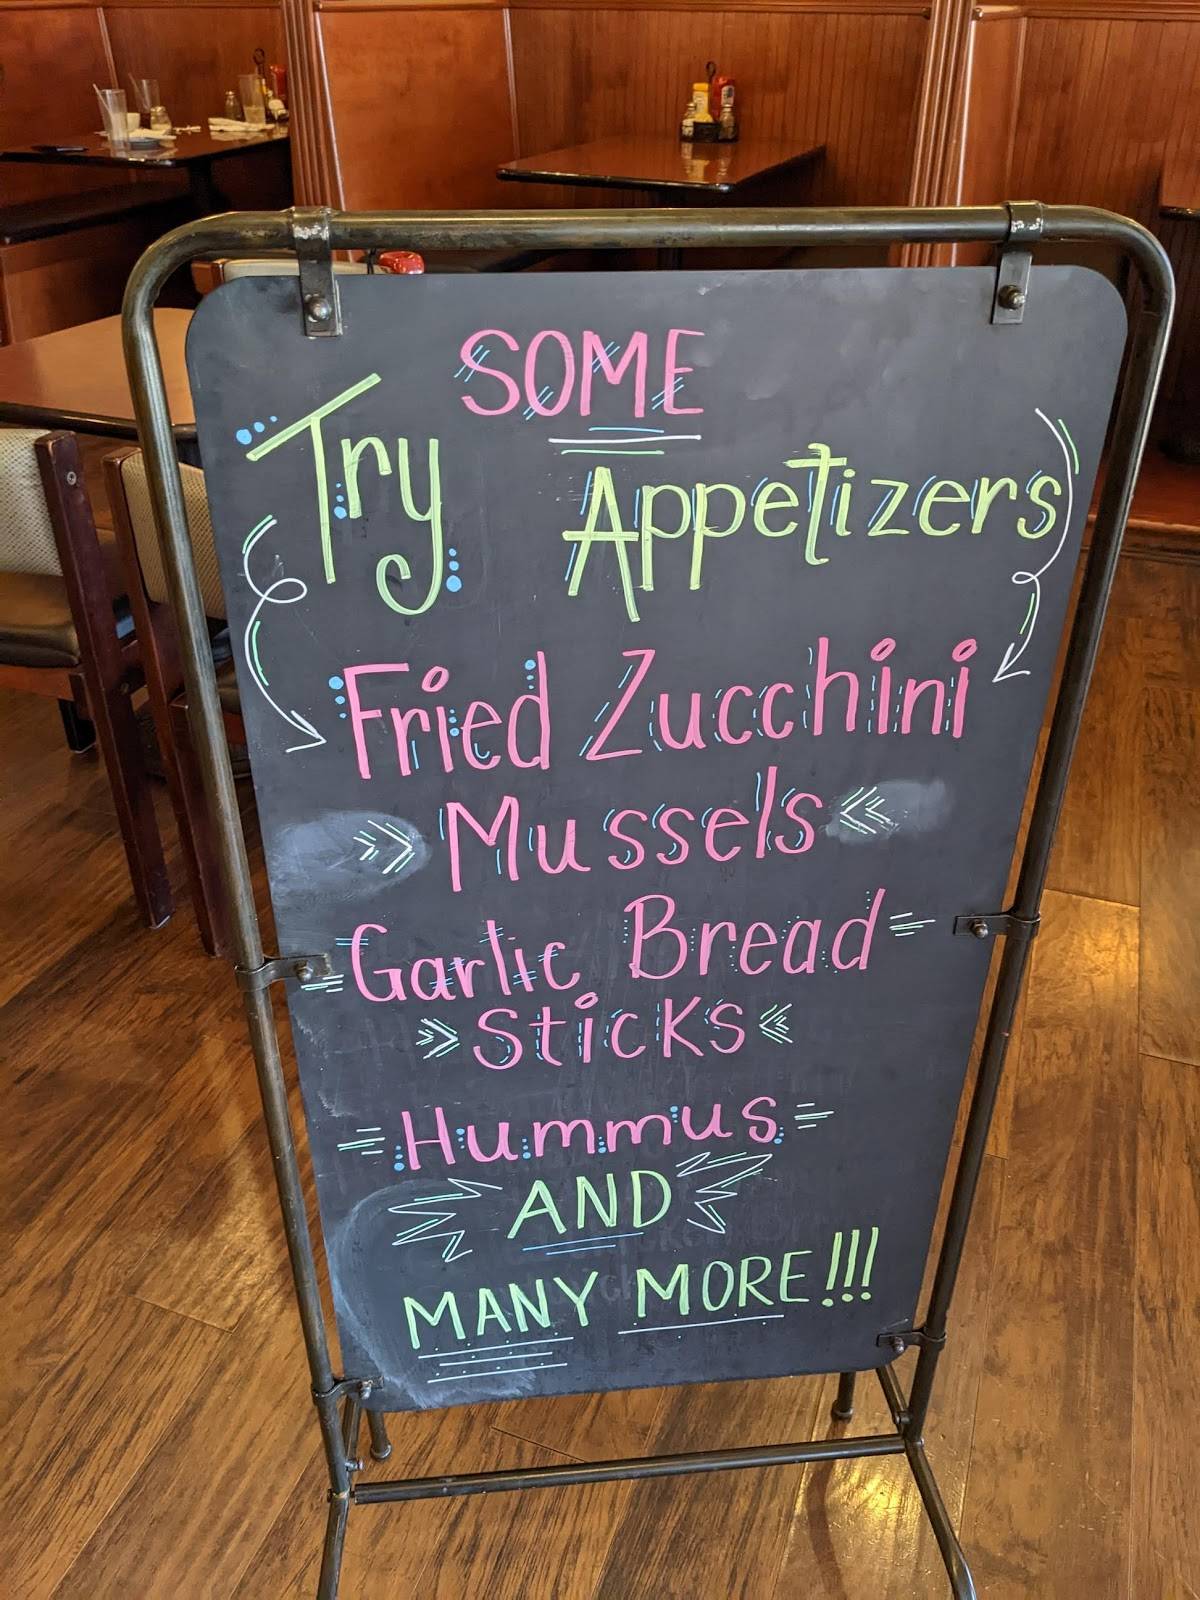 Try SOME
Appetizers
Fried Zucchini
Mussels
Garlic Bread
Sticks
Hummus
AND
MANY MORE!!!